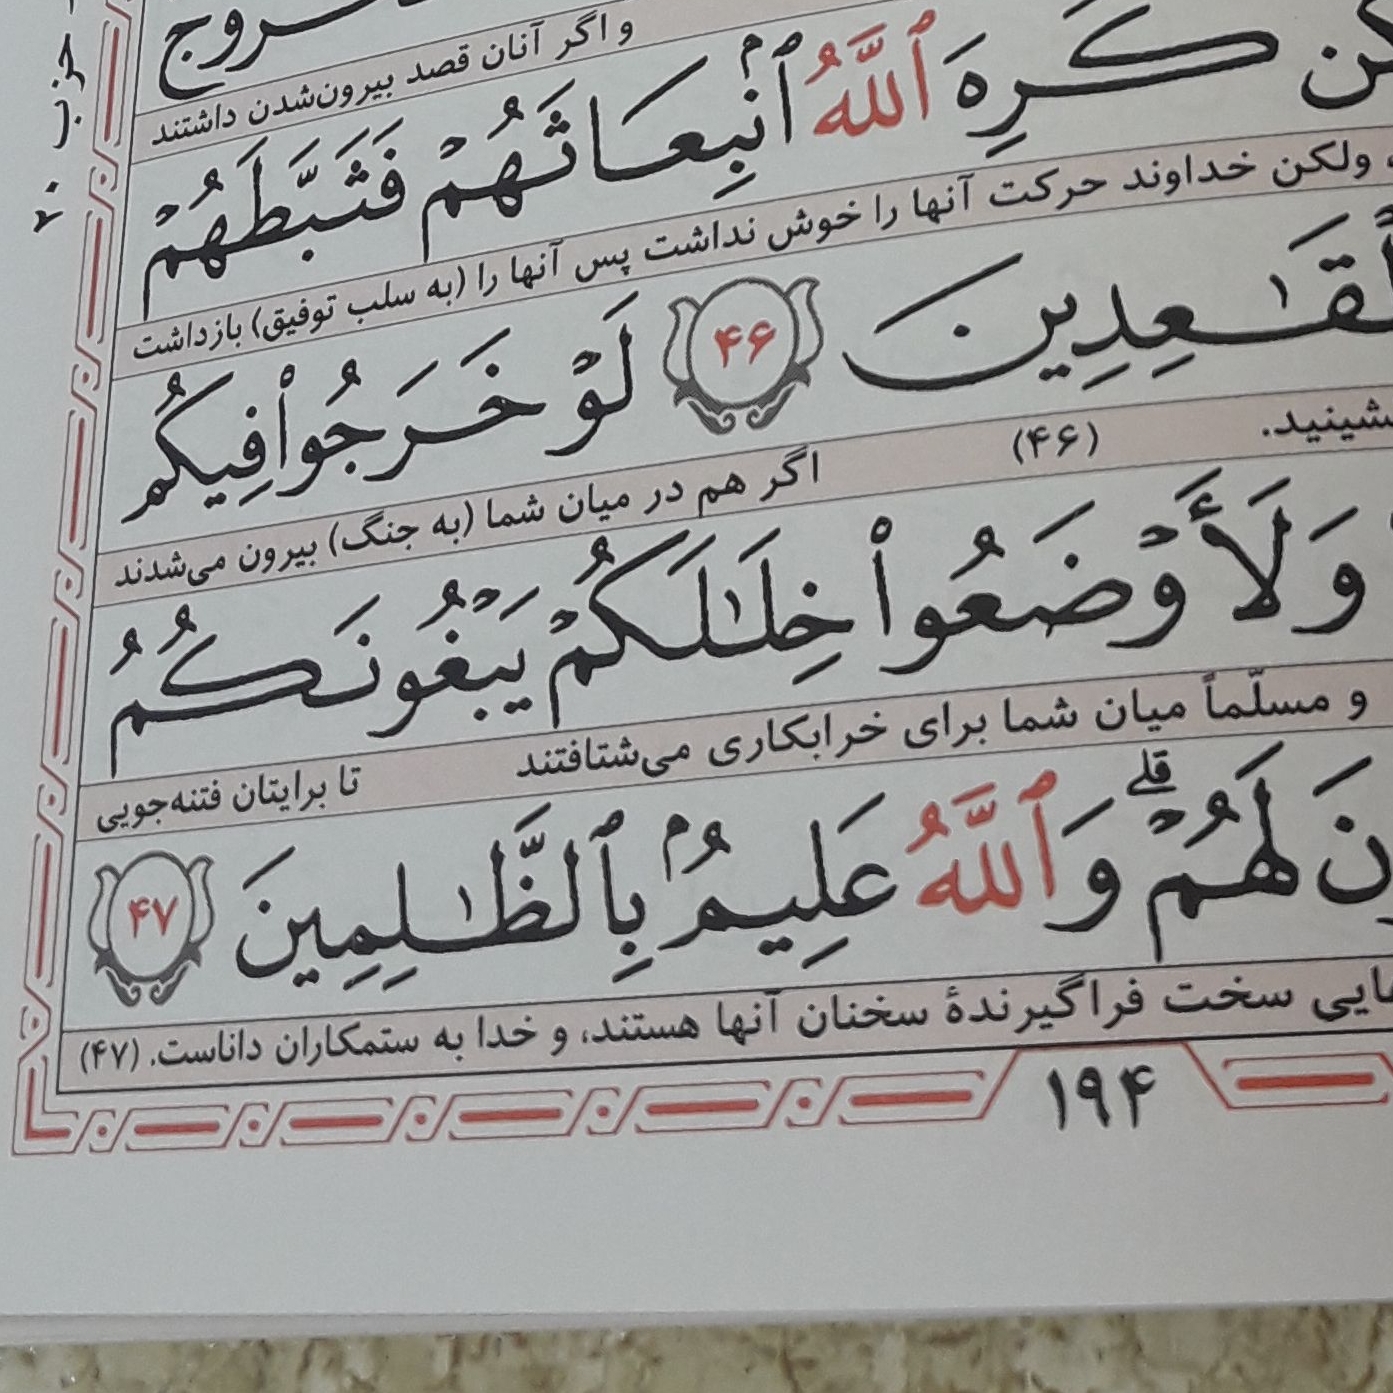 و اگر آنان قصد بیرون‌شدن داشتند
كَرِهَ ٱللَّهُ ٱنۢبِعَاثَهُمْ فَثَبَّطَهُمْ
ولکن خداوند حرکت آنها را خوش نداشت پس آنها را (به سلب توفیق) بازداشت
ٱلْقَـٰعِدِينَ ۴۶ لَوْ خَرَجُوا۟ فِيكُم
(۴۶) اگر هم در میان شما (به جنگ) بیرون می‌شدند
وَلَأَوْضَعُوا۟ خِلَـٰلَكُمْ يَبْغُونَكُمُ
و مسلّماً میان شما برای خرابکاری می‌شتافتند تا برایتان فتنه‌جویی
لَهُمْ ۗ وَٱللَّهُ عَلِيمُۢ بِٱلظَّـٰلِمِينَ ۴۷
سخت فراگیرندهٔ سخنان آنها هستند، و خدا به ستمکاران داناست. (۴۷)
۱۹۴
حزب ۲۰